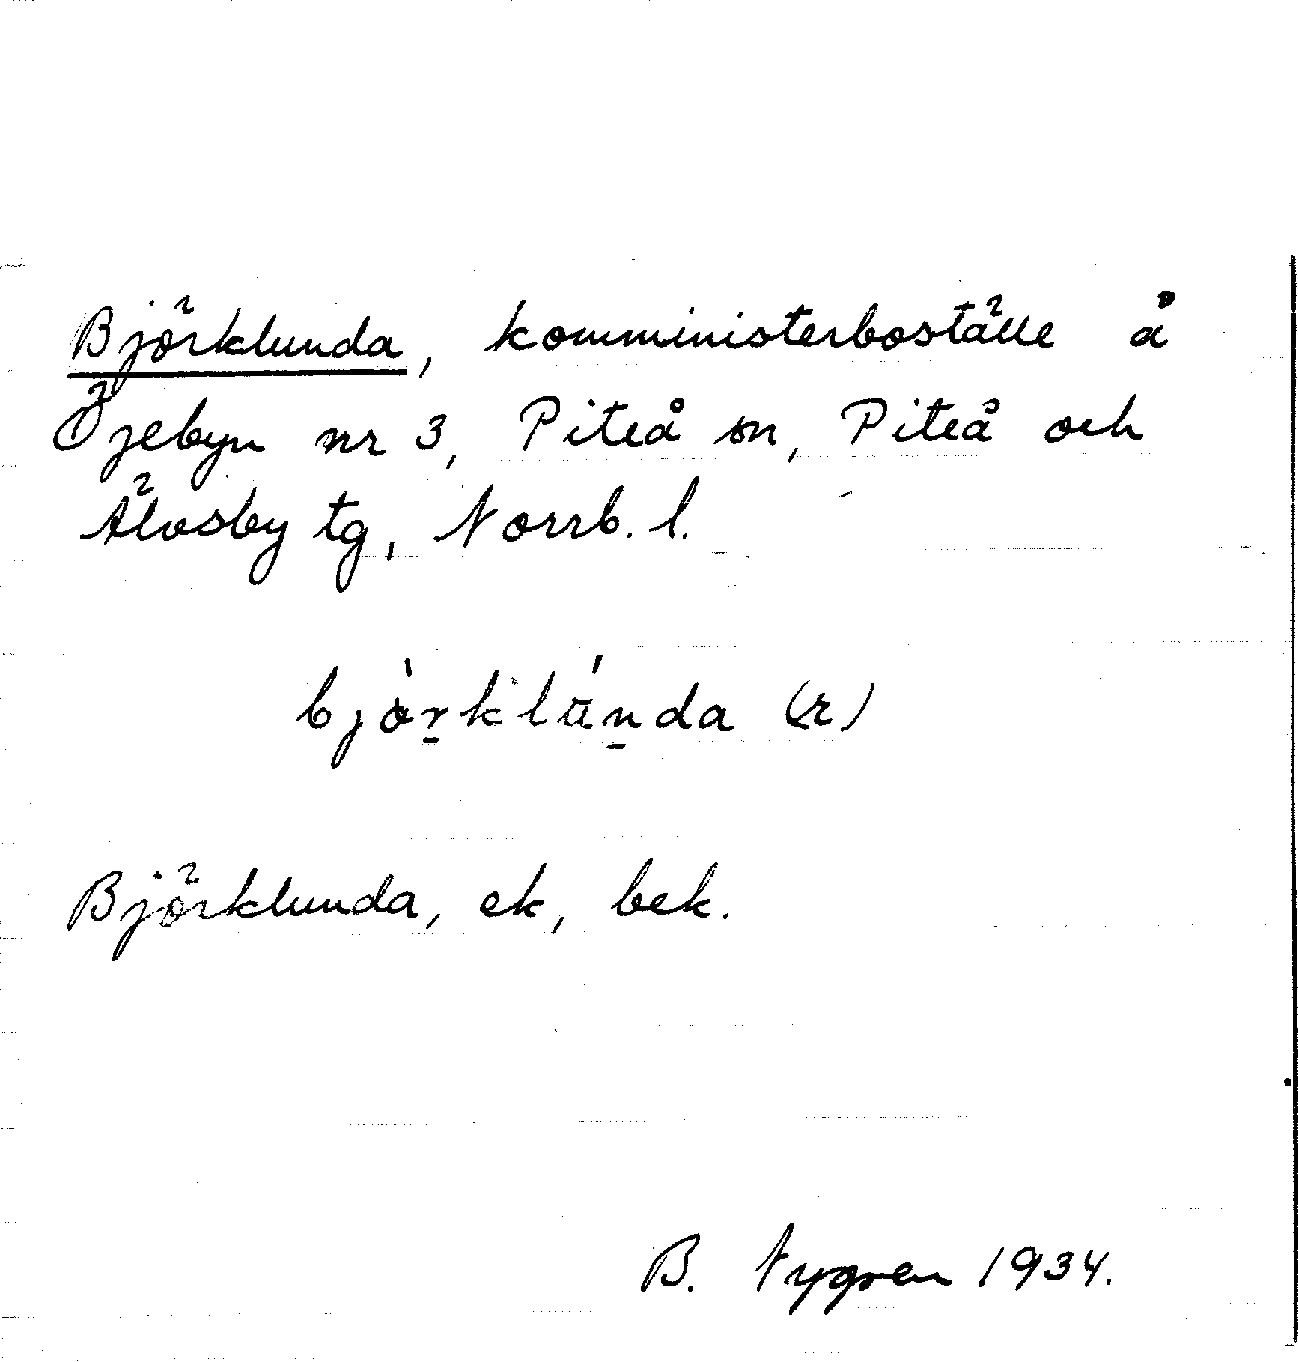 Björklunda, komministerboställe å
Öjebyn nr 3, Piteå sn, Piteå och
Älvsby tg, Norrb. l.
bjòrklánda (r)
Björklunda, ek, bek.
B. Nygren 1934.